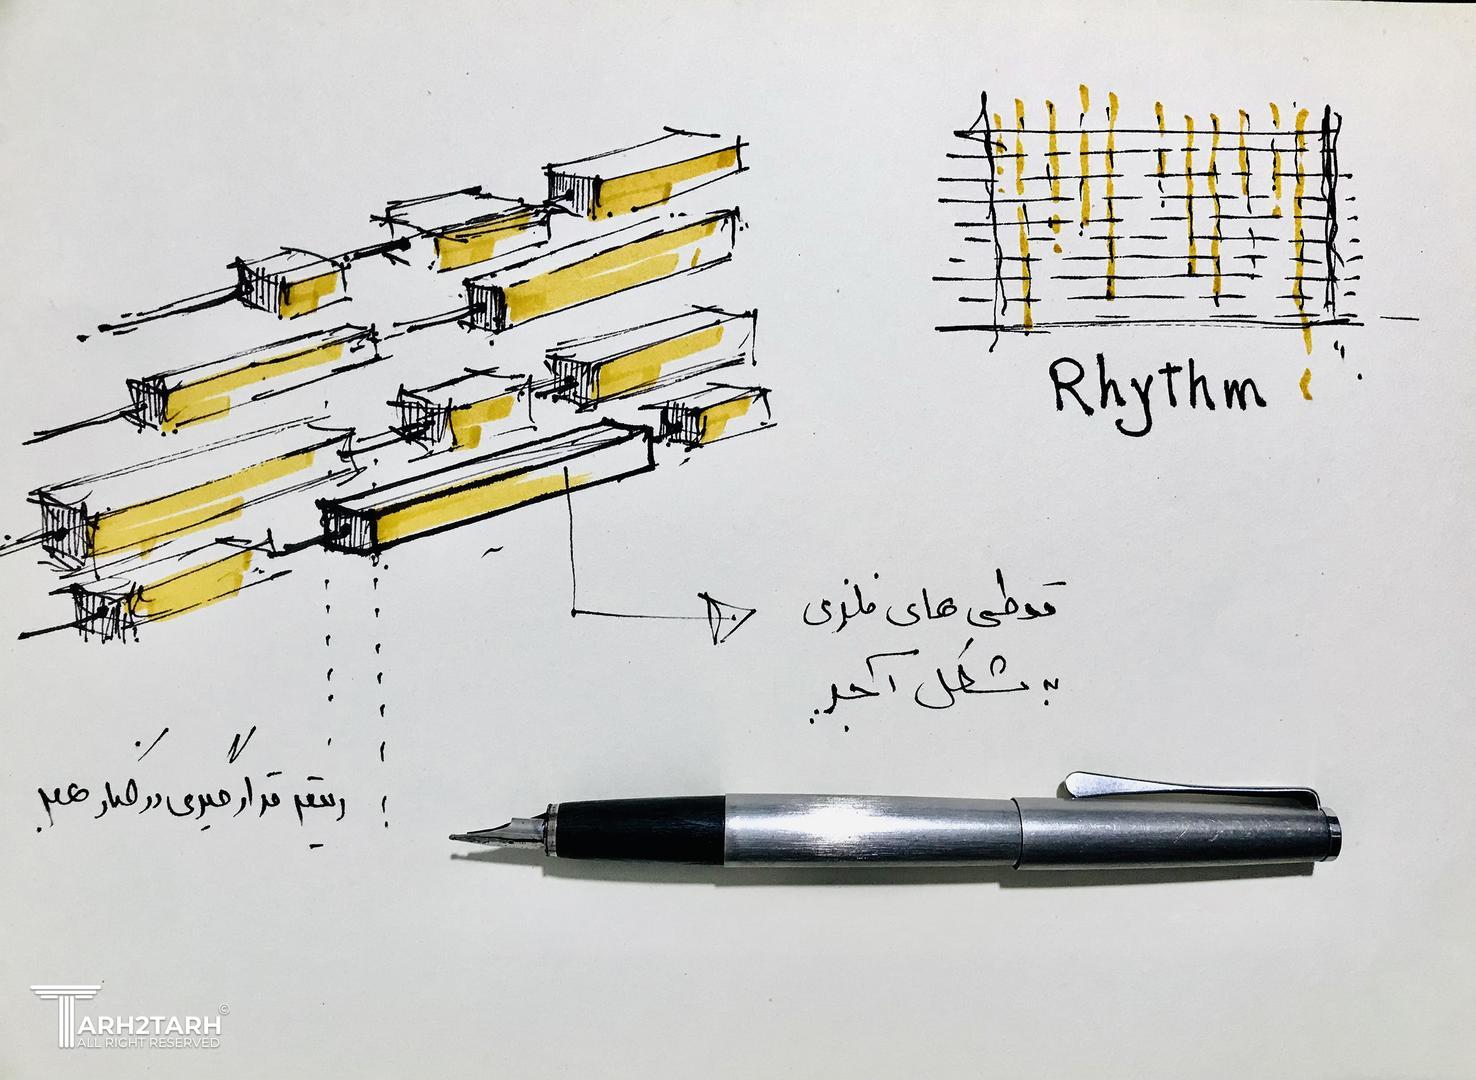 Rhythm
قوطی های فلزی
به شکل آجر
ریتم قرارگیری در کنار هم
TARH2TARH©
ALL RIGHT RESERVED